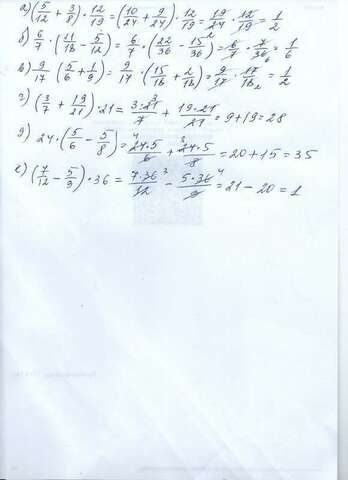 а) (5/12 + 3/8) · 12/19 = (10/24 + 9/24) · 12/19 = 19/24 · 12/19 = 1/2
б) 6/7 · (11/18 - 5/12) = 6/7 · (22/36 - 15/36) = 6/7 · 7/36 = 1/6
в) 9/17 · (5/6 + 1/9) = 9/17 · (15/18 + 2/18) = 9/17 · 17/18 = 1/2
г) (3/7 + 19/21) · 21 = 3·21/7 + 19·21/21 = 9 + 19 = 28
д) 24 · (5/6 - 5/8) = 24·5/6 + 24·5/8 = 20 + 15 = 35
е) (7/12 - 5/9) · 36 = 7·36/12 - 5·36/9 = 21 - 20 = 1